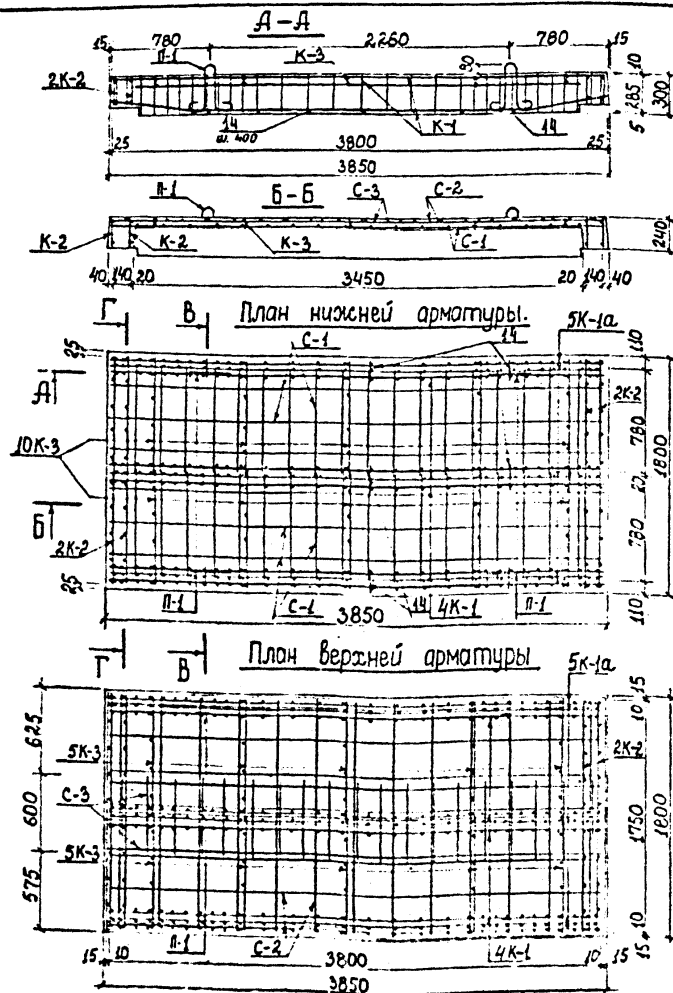 А-А
15 780 2260 780 15
П-1 К-3 90 10
2К-2 285 300
14 К-1 14 5
ш. 400
25 3800 25
3850
П-1 Б-Б С-3 С-2
К-2 К-2 К-3 С-1 240
40 140 20 3450 20 140 40
Г В План нижней арматуры.
С-1 14 5К-1а
25 110
А 2К-2
780
10К-3 1800
20
Б 780
2К-2
25
П-1 С-1 14 4К-1 П-1 110
3850
Г В План верхней арматуры
5К-1а
15
625 10
5К-3 2К-2
С-3
600 1750 1800
5К-3
575
10
П-1 С-2 4К-1 15
15 10 3800 10 15
3850